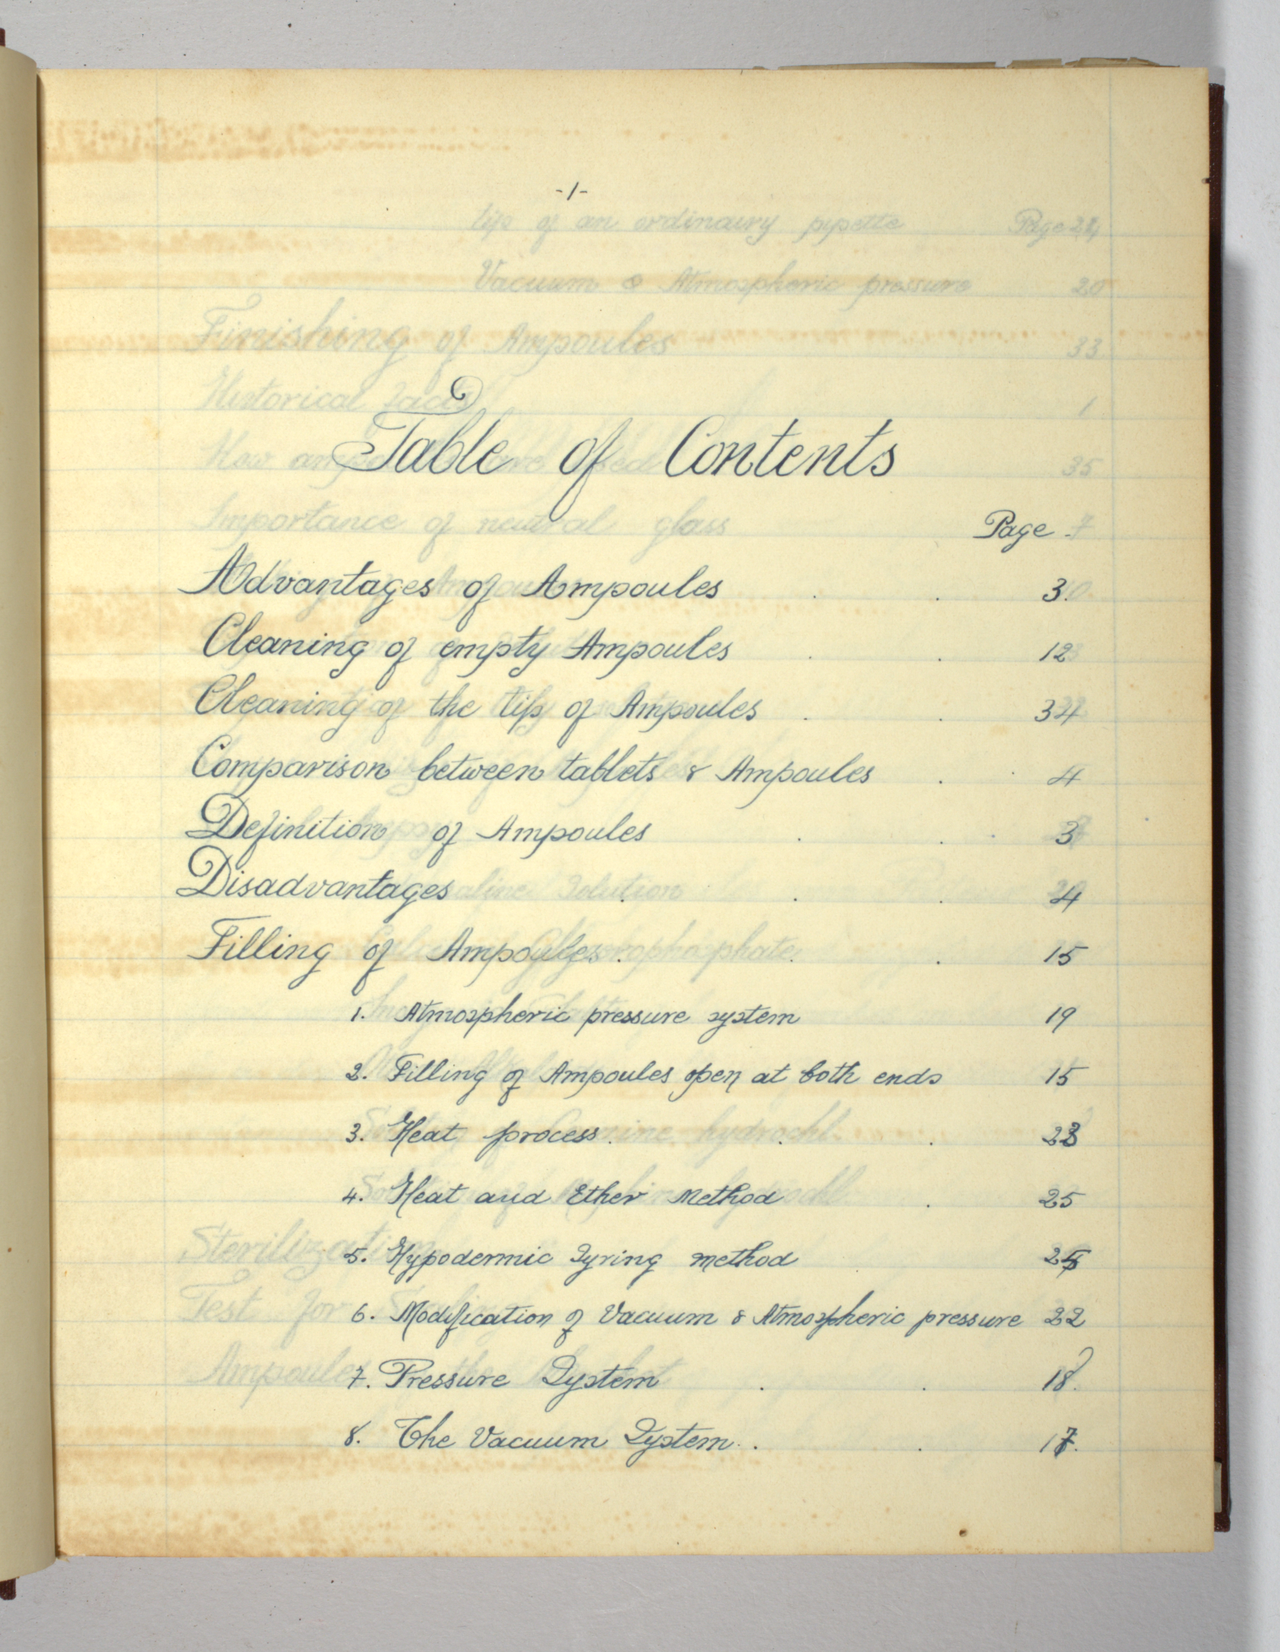 -1-
Table of Contents
Page
Advantages of Ampoules . . 3.
Cleaning of empty Ampoules . . 12
Cleaning of the tip of Ampoules . . 34
Comparison between tablets & Ampoules . . 4
Definition of Ampoules . . . 3
Disadvantages . . . 4
Filling of Ampoules . . . 15
1. Atmospheric pressure system 19
2. Filling of Ampoules open at both ends 15
3. Heat process . . . 23
4. Heat and Ether Method . 25
5. Hypodermic Syring method 25
6. Modification of Vacuum & Atmospheric pressure 22
7. Pressure System . . 18.
8. The Vacuum System . . 17.